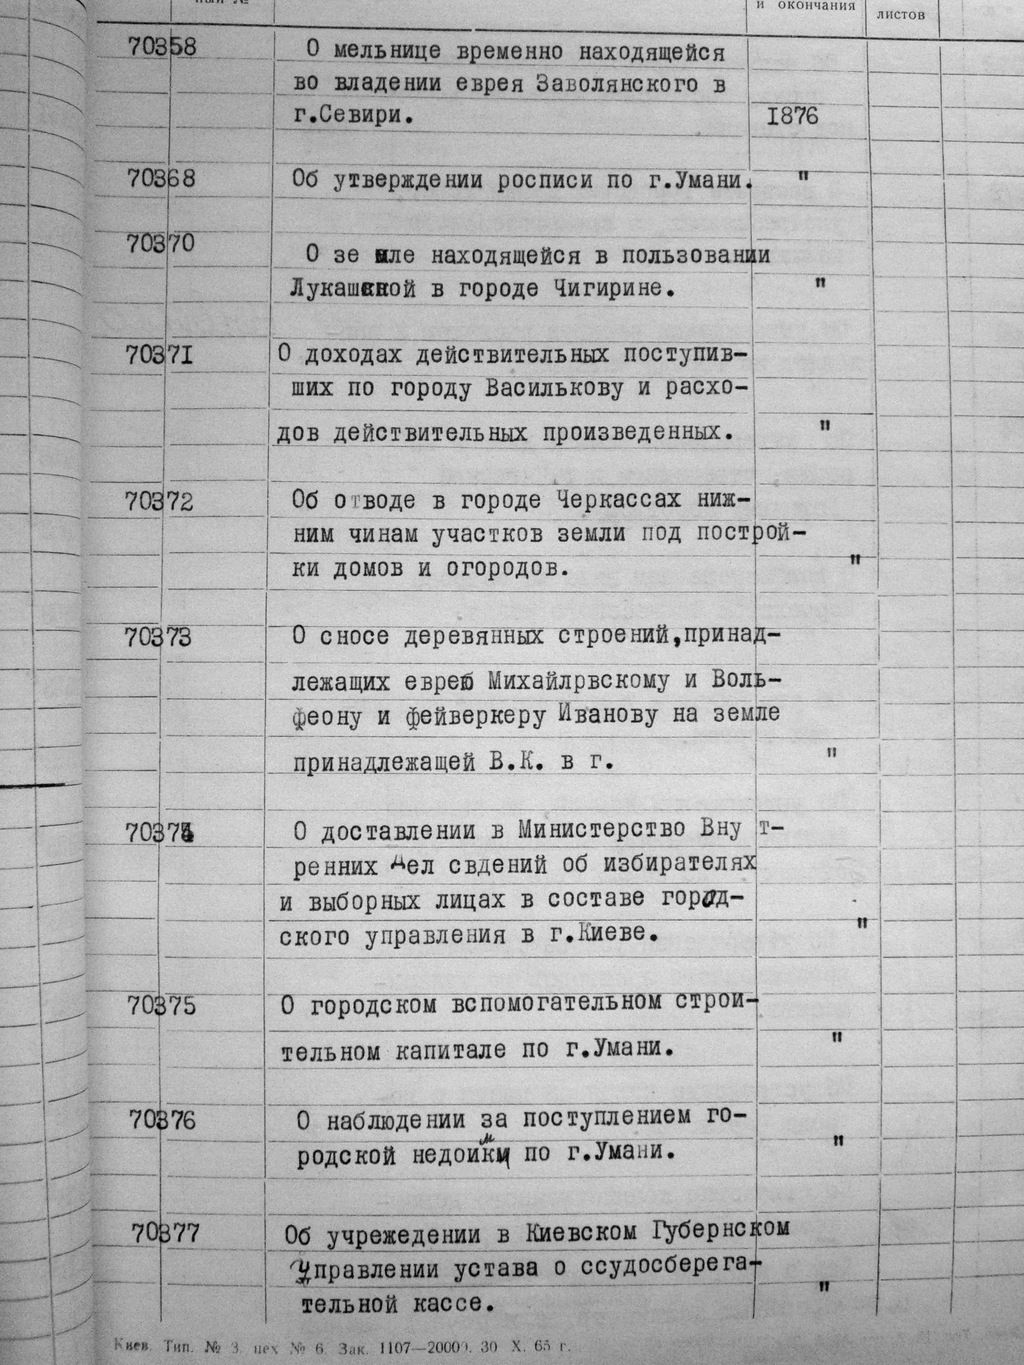 ный №
и окончания
листов
70358 О мельнице временно находящейся
во владении еврея Заволянского в
г.Севири. I876
70368 Об утверждении росписи по г.Умани. "
70370 О зе мле находящейся в пользовании
Лукашевой в городе Чигирине. "
7037I О доходах действительных поступив-
ших по городу Василькову и расхо-
дов действительных произведенных. "
70372 Об отводе в городе Черкассах ниж-
ним чинам участков земли под построй-
ки домов и огородов. "
70373 О сносе деревянных строений,принад-
лежащих еврею Михайлрвскому и Воль-
феону и фейверкеру Иванову на земле
принадлежащей В.К. в г. "
70374 О доставлении в Министерство Вну т-
ренних Дел свдений об избирателях
и выборных лицах в составе город-
ского управления в г.Киеве. "
70375 О городском вспомогательном строи-
тельном капитале по г.Умани. "
70376 О наблюдении за поступлением го-
родской недоимки по г.Умани. "
70377 Об учрежедении в Киевском Губернском
Управлении устава о ссудосберега-
тельной кассе. "
Киев. Тип. № 3. цех № 6. Зак. 1107—20000. 30 X. 65 г.